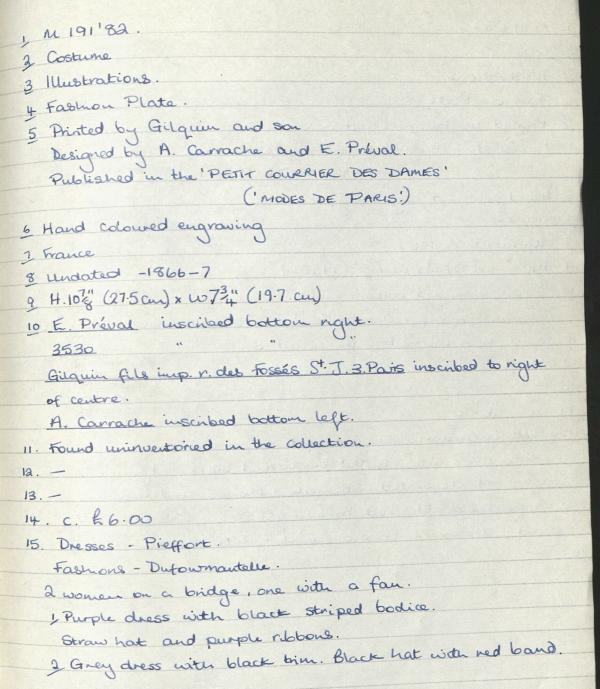 1 M 191'82.
2 Costume
3 Illustrations.
4 Fashion Plate.
5 Printed by Gilquin and son
Designed by A. Carrache and E. Préval.
Published in the 'PETIT COURRIER DES DAMES'
('MODES DE PARIS')
6 Hand coloured engraving
7 France
8 Undated -1866-7
9 H. 10 7/8" (27.5 cm) x W 7 3/4" (19.7 cm)
10 E. Préval inscribed bottom right.
3530 " " "
Gilquin fils imp. r. des Fossés St. J. 3. Paris inscribed to right
of centre.
A. Carrache inscribed bottom left.
11. Found uninventoried in the collection.
12. —
13. —
14. c. £6.00
15. Dresses - Pieffort.
Fashions - Dufourmantelle.
2 women on a bridge, one with a fan.
1 Purple dress with black striped bodice.
Straw hat and purple ribbons.
2 Grey dress with black trim. Black hat with red band.